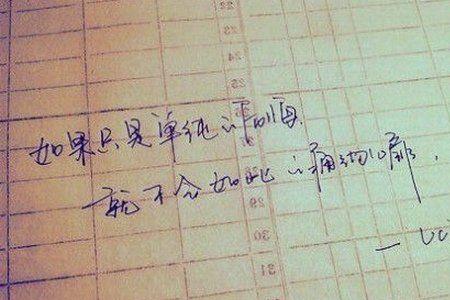 22
23
24
25
如果只是单纯的
28
就不会如此的痛彻心扉.
29
30
31